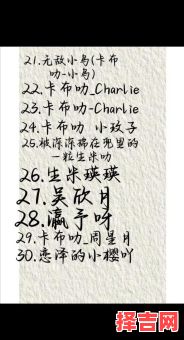 21.无敌小鸟(卡布
叻-小鸟)
22.卡布叻_Charlie
23.卡布叻-Charlie
24.卡布叻 小玫子
25.被深深揣在兜里的
一粒生米叻
26.生米瑛瑛
27.吴欣月
28.瀛子呀
29.卡布叻_周星月
30.恋泽的小樱吖
择吉网